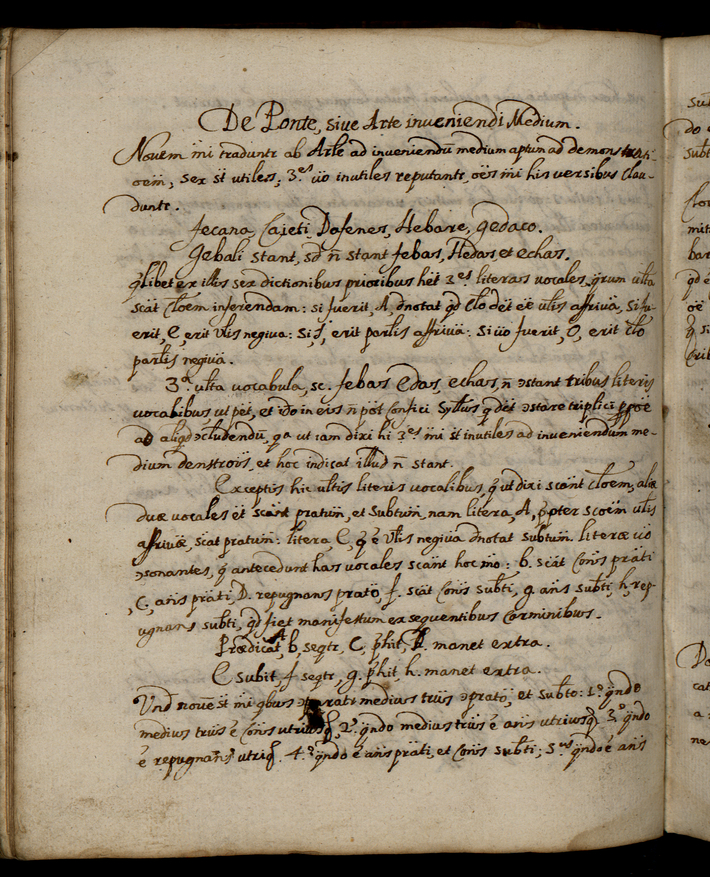 De Ponte, sive Arte inveniendi Medium.
Novem m̄i tradunt̄r ab Arte ad inveniendū medium aptum ad demonstrati-
oēm, sex s̄t utiles, 3.es v̄o inutiles reputant̄r, oēs m̄i his versibus clau-
dunt̄r.
Fecana, Cajeti, Dafenes, Hebare, gedaco.
Gebali stant, sd̄ n̄ stant febas, Hedas, et echas.
q̄libet ex illis sex dictionibus prioribus hēt 3.es literas vocales, q̄rum ult̄a
sc̄at cl̄oem inferendam: si fuerit, A, dn̄otat q̄d cl̄o dēt ēē ul̄is affriva, si fu-
erit, E, erit ul̄is negiva: si, I, erit parl̄is affriva: si v̄o fuerit, O, erit cl̄o
parl̄is negiva.
3.a ult̄a vocabula, sc. febas edas, echas, n̄ ɔstant tribus literis
vocalibus, ut pēt, et id̄o in eis n̄ pōt confici syll̄us q̄ dēt ɔstare triplici pp̄oe
ad aliq̄d ɔcludendū, q.a ut iam dixi hi 3.es m̄i s̄t inutiles ad inveniendum me-
dium den̄strois, et hoc indicat illud n̄ stant.
Exceptis his ult̄is literis vocalibus, q̄ ut dixi sc̄ant cl̄oem, aliæ
duæ vocales ēt sc̄ant p̄ratum, et subtum, nam litera, A, p̄pter sc̄oem ul̄is
affrivæ, sc̄at p̄ratum: litera, E, q̄ ē ul̄is negiva dn̄otat subtum. literæ v̄o
ɔsonantes, q̄ antecedunt has vocales sc̄ant hoc m̄o: b. sc̄at cōn̄s p̄rati
, C, an̄s p̄rati, D. repugnans p̄rato, f. sc̄at cōn̄s subti, g. an̄s subti, h, rep-
ugnans subti, q̄d fiet manifestum ex sequentibus carminibus.
Prædicat, A, b, seqt̄r, C, p̄hit, D. manet extra.
E subit, f seqt̄r, g. p̄hit, h. manet extra.
Und̄ novē s̄t m̄i q̄bus medius tr̄us ɔ p̄rato, et subto: 1.o q̄ndo
medius tr̄us ē cōn̄s utriusq̄, 2.o q̄ndo medius tr̄us ē an̄s utriusq̄. 3.o q̄ndo
ē repugnans utriq̄. 4.o q̄ndo ē an̄s p̄rati, et cōn̄s subti; 5.us q̄ndo ē an̄s